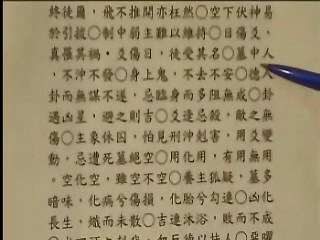 終徒爾，飛不推開亦枉然○空下伏神易
於引拔○制中弱主難以維持○日傷爻，
真罹其禍，爻傷日，徒受其名○墓中人
，不沖不發○身上鬼，不去不安○德入
卦而無謀不遂，忌臨身而多阻無成○卦
遇凶星，避之則吉○爻逢忌殺，敵之無
傷○主象休囚，怕見刑沖剋害，用爻變
動，忌遭死墓絕空○用化用，有用無用
。空化空，雖空不空○養主狐疑，墓多
暗味，化病兮傷損，化胎兮勾連○凶化
長生，熾而未散○吉連沐浴，敗而不成